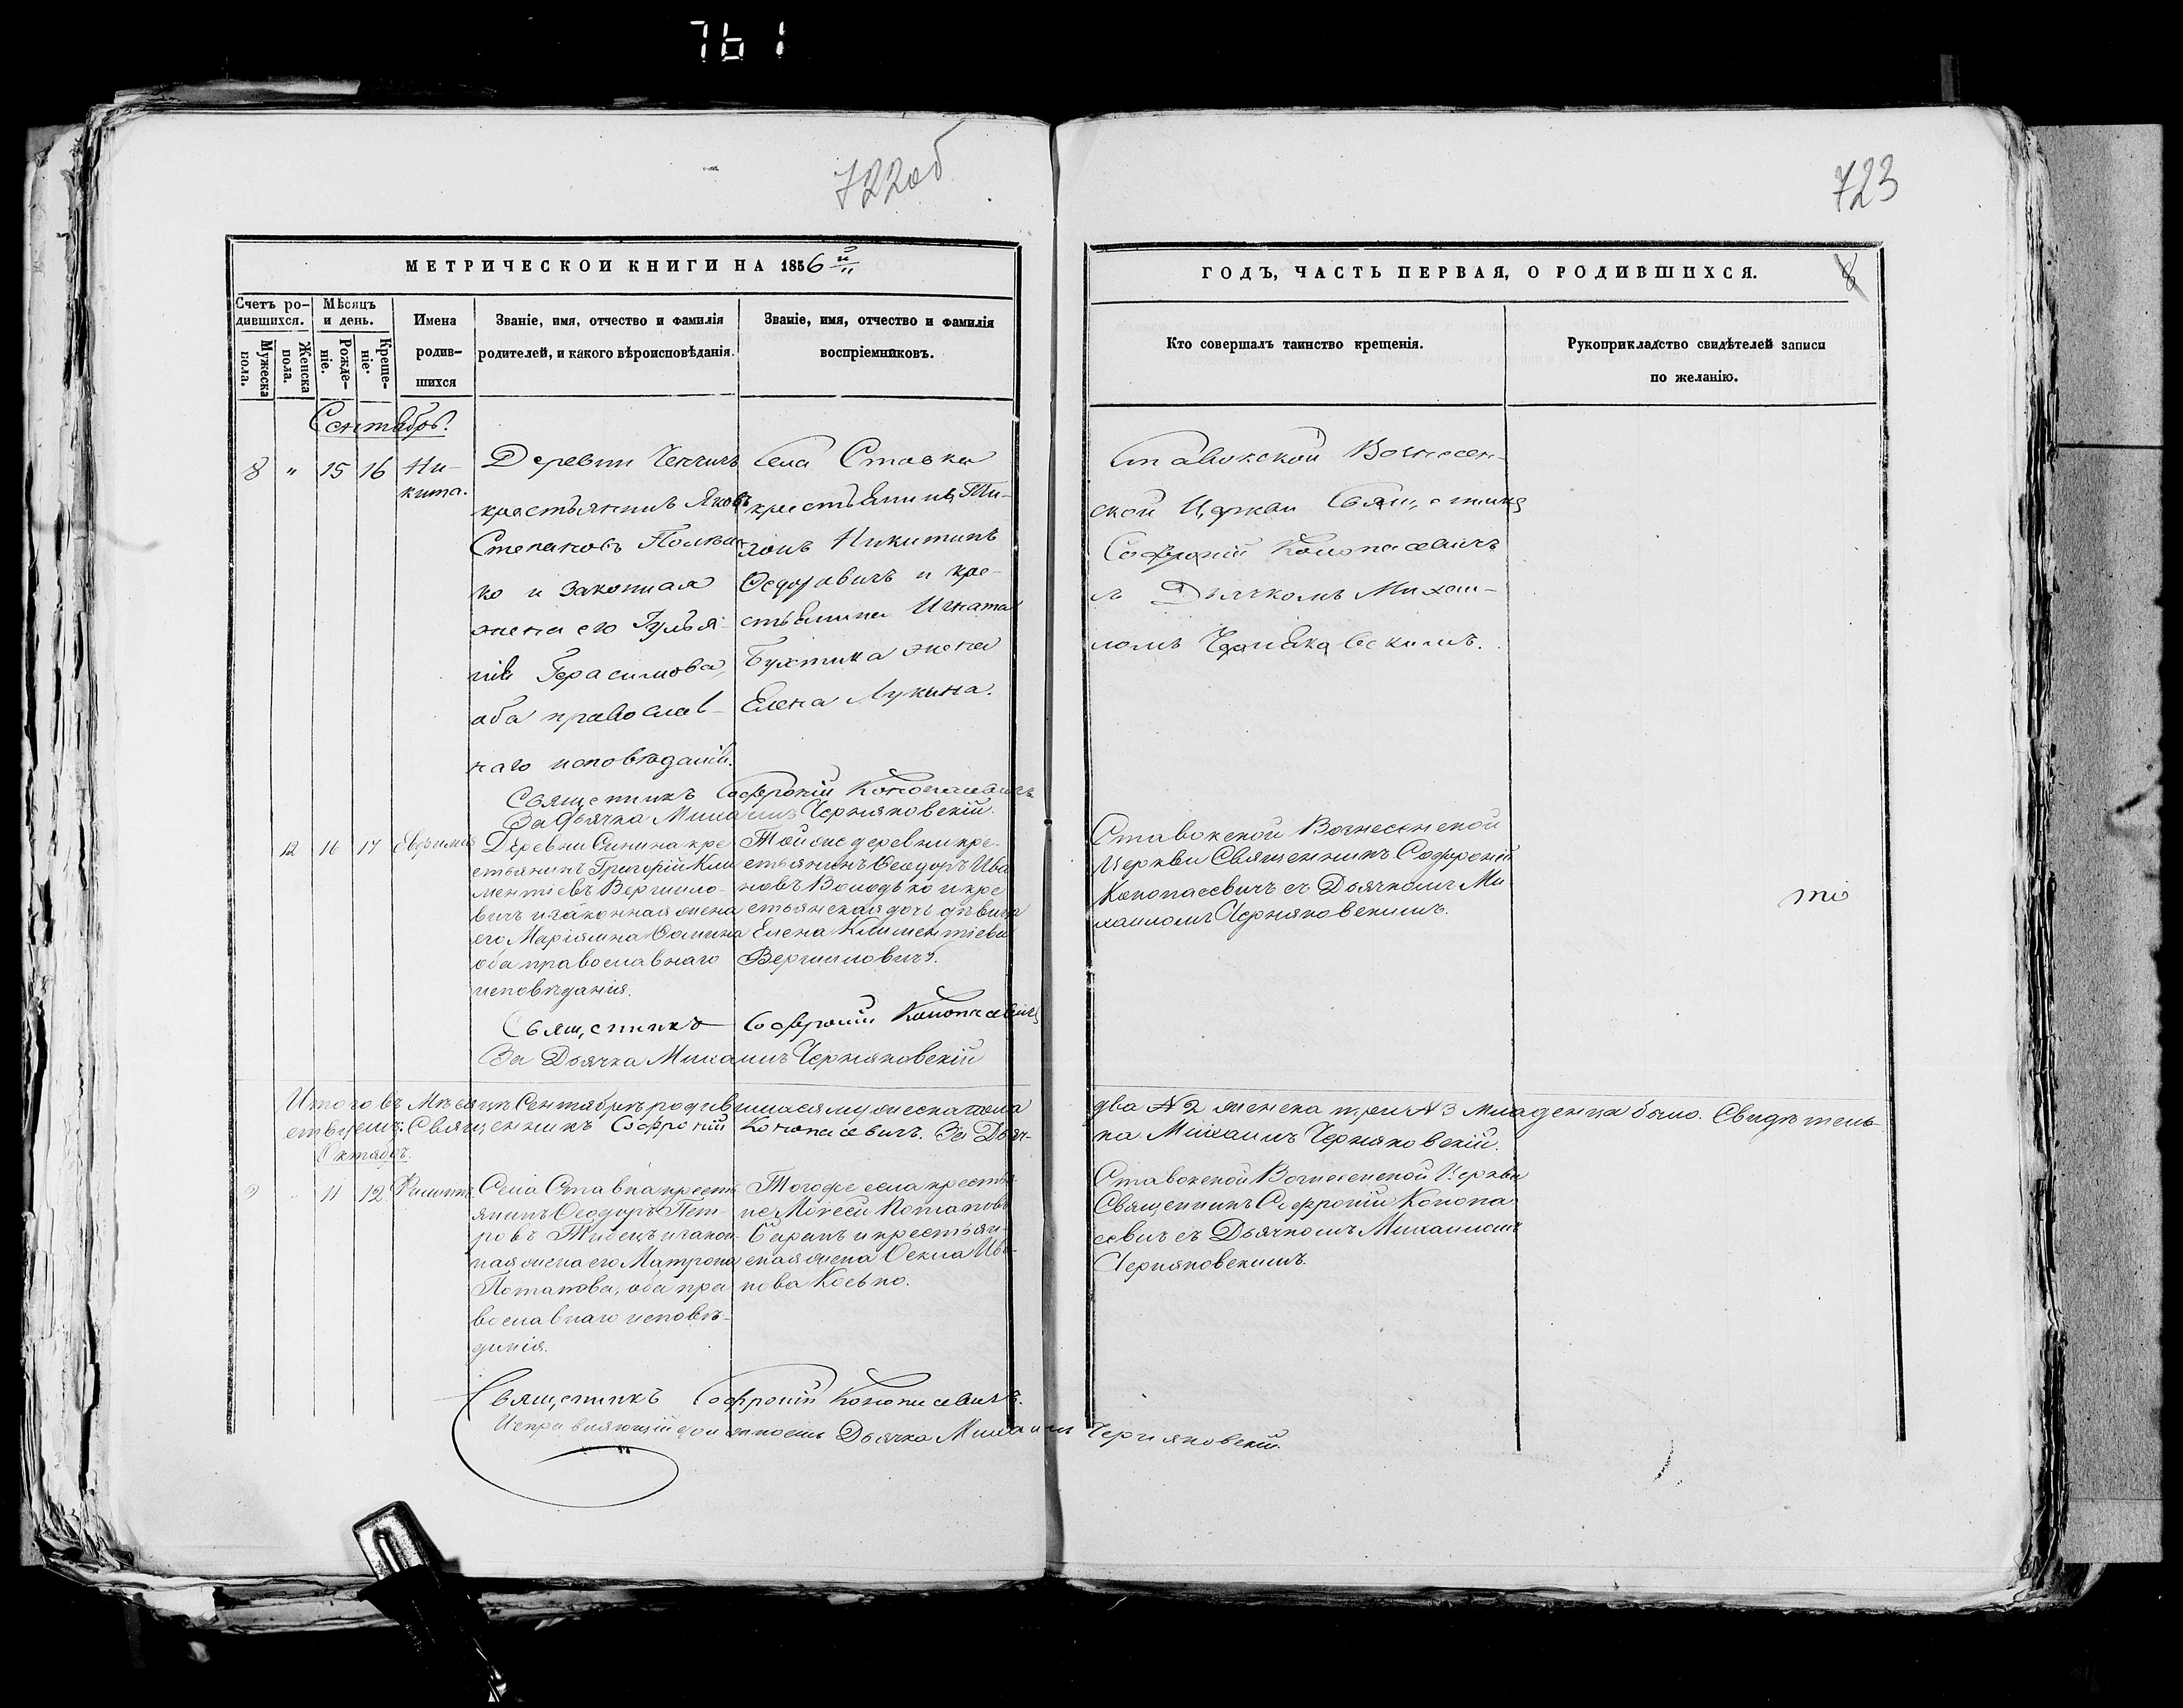 761
722об
723
МЕТРИЧЕСКОЙ КНИГИ НА 1856й
ГОДЪ, ЧАСТЬ ПЕРВАЯ, О РОДИВШИХСЯ.
8
Счетъ ро-
дившихся.
Мужеска
пола.
Женска
пола.
Мѣсяцъ
и день.
Рожде-
ніе.
Креще-
ніе.
Имена
родив-
шихся
Званіе, имя, отчество и фамилія
родителей, и какого вѣроисповѣданія.
Званіе, имя, отчество и фамилія
воспріемниковъ.
Кто совершалъ таинство крещенія.
Рукоприкладство свидѣтелей записи
по желанію.
Сентябрь.
8 " 15 16
Ни-
кита.
Деревни
крестьянинъ Яковъ
Степановъ
ко и законная
жена его Гулья-
нія Герасимова,
оба православ-
наго исповѣданія.
Села Ставка
крестьянинъ
Никитинъ
Федоровичъ и кре-
стьянина Игната
Бухтика жена
Елена Лукина.
Ставокской Вознесен-
ской Церкви Священникъ
Софроній Конопасевичъ
съ Дьячкомъ Михаи-
ломъ Черняковскимъ.
Священникъ Софроній Конопасевичъ
За Дьячка Михаилъ Черняковскій.
12 16 17
Евфимія
Деревни Синина кре-
стьянинъ Григорій Кли-
ментіевъ Вергило-
вичъ и законная жена
его Маріамна Фомина
оба православнаго
исповѣданія.
Той же деревни кре-
стьянинъ Феодоръ Ива-
новъ Володько и кре-
стьянская дочь дѣвица
Елена Климентіева
Вергиловичъ.
Ставокской Вознесенской
Церкви Священникъ Софроній
Конопасевичъ съ Дьячкомъ Ми-
хаиломъ Черняковскимъ.
Священникъ Софроній Конопасевичъ
За Дьячка Михаилъ Черняковскій
Итого въ Мѣсяцѣ Сентябрѣ родившихся мужеска пола
два №2 женска три №3 младенца было. Свидѣтель-
ствуемъ: Священникъ Софроній Конопасевичъ. За Дьяч-
ка Михаилъ Черняковскій.
Октябрь.
9 " 11 12
Филиппъ
Села Ставка кресть-
янинъ Феодоръ Пет-
ровъ и закон-
ная жена его Матрона
Потапова, оба пра-
вославнаго исповѣ-
данія.
Тогоже села кресть-
Мойсей Романовъ
и крестьян-
ская жена Фекла Ива-
нова Косько.
Ставокской Вознесенской Церкви
Священникъ Софроній Конопа-
севичъ съ Дьячкомъ Михаиломъ
Черняковскимъ.
Священникъ Софроній Конопасевичъ.
Исправляющій должность Дьячка Михаилъ Черняковскій.